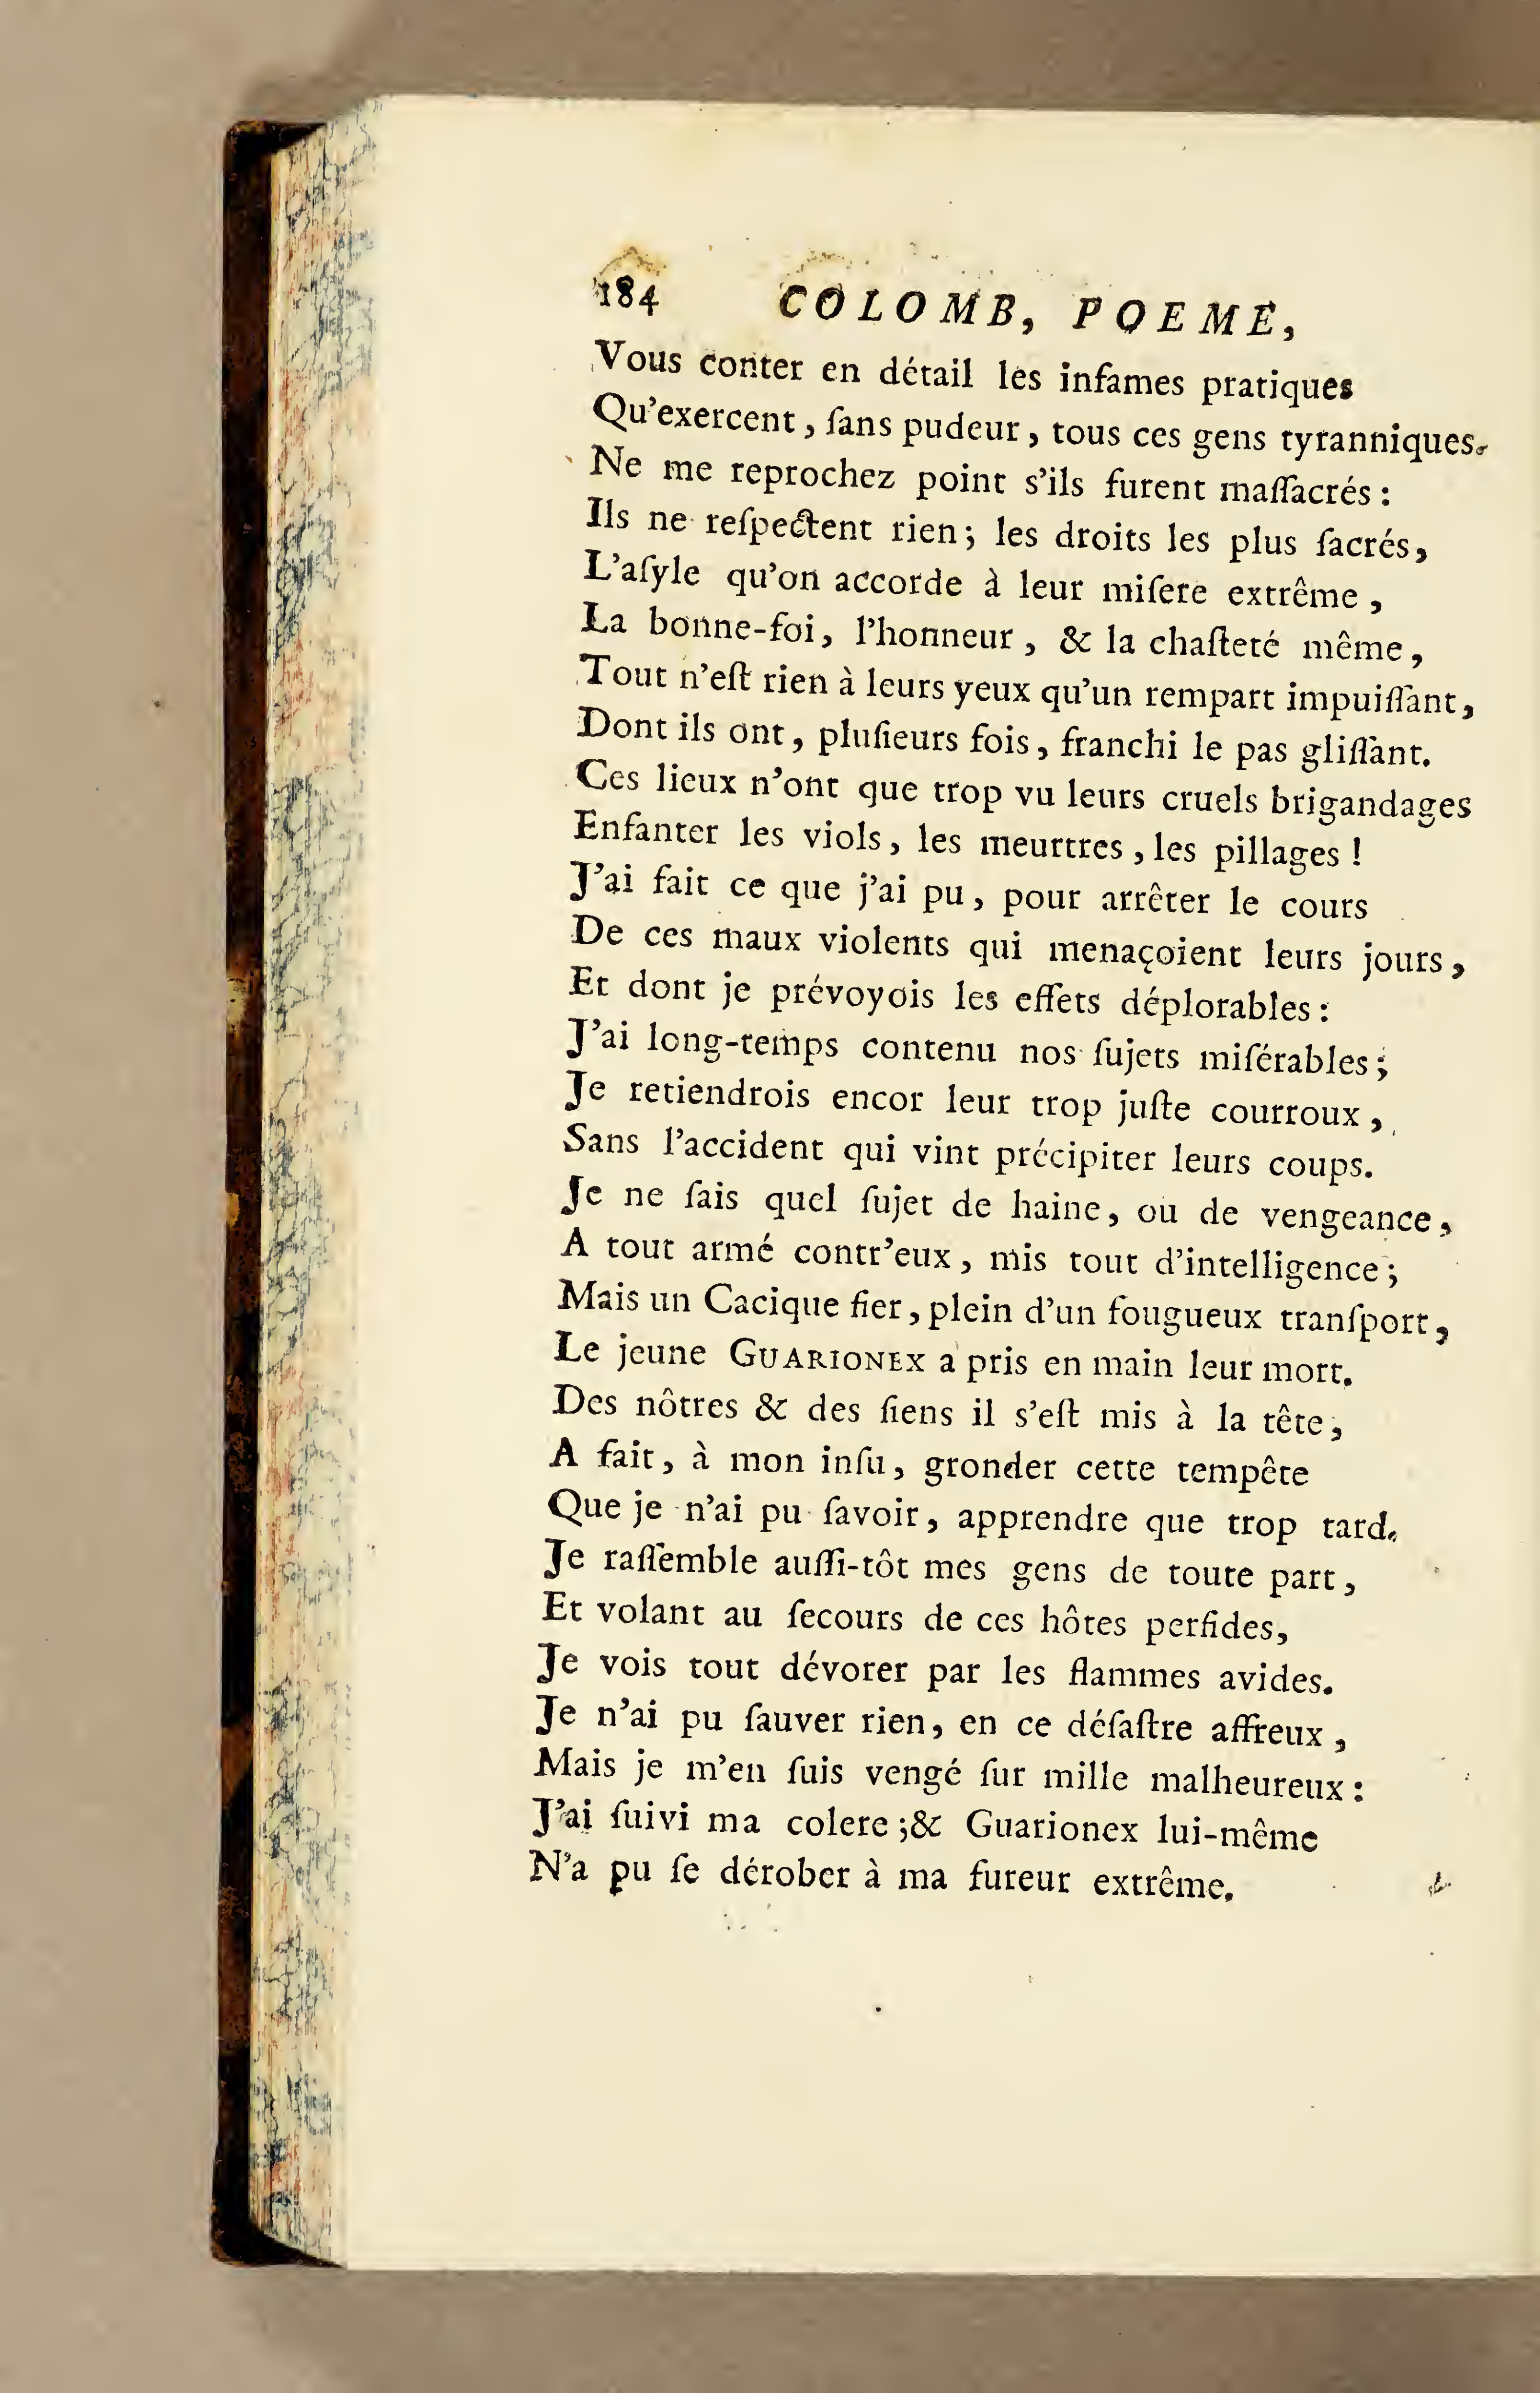 184 COLOMB, POEME,
Vous conter en détail les infames pratiques
Qu'exercent, ſans pudeur, tous ces gens tyranniques.
Ne me reprochez point s'ils furent maſſacrés :
Ils ne reſpectent rien; les droits les plus ſacrés,
L'aſyle qu'on accorde à leur miſere extrême,
La bonne-foi, l'honneur, & la chaſteté même,
Tout n'eſt rien à leurs yeux qu'un rempart impuiſſant,
Dont ils ont, pluſieurs fois, franchi le pas gliſſant.
Ces lieux n'ont que trop vu leurs cruels brigandages
Enfanter les viols, les meurtres, les pillages !
J'ai fait ce que j'ai pu, pour arrêter le cours
De ces maux violents qui menaçoient leurs jours,
Et dont je prévoyois les effets déplorables :
J'ai long-temps contenu nos ſujets miſérables;
Je retiendrois encor leur trop juſte courroux,
Sans l'accident qui vint précipiter leurs coups.
Je ne ſais quel ſujet de haine, ou de vengeance,
A tout armé contr'eux, mis tout d'intelligence;
Mais un Cacique fier, plein d'un fougueux tranſport,
Le jeune GUARIONEX a pris en main leur mort.
Des nôtres & des ſiens il s'eſt mis à la tête,
A fait, à mon inſu, gronder cette tempête
Que je n'ai pu ſavoir, apprendre que trop tard.
Je raſſemble auſſi-tôt mes gens de toute part,
Et volant au ſecours de ces hôtes perfides,
Je vois tout dévorer par les flammes avides.
Je n'ai pu ſauver rien, en ce déſaſtre affreux,
Mais je m'en ſuis vengé ſur mille malheureux :
J'ai ſuivi ma colere ;& Guarionex lui-même
N'a pu ſe dérober à ma fureur extrême.